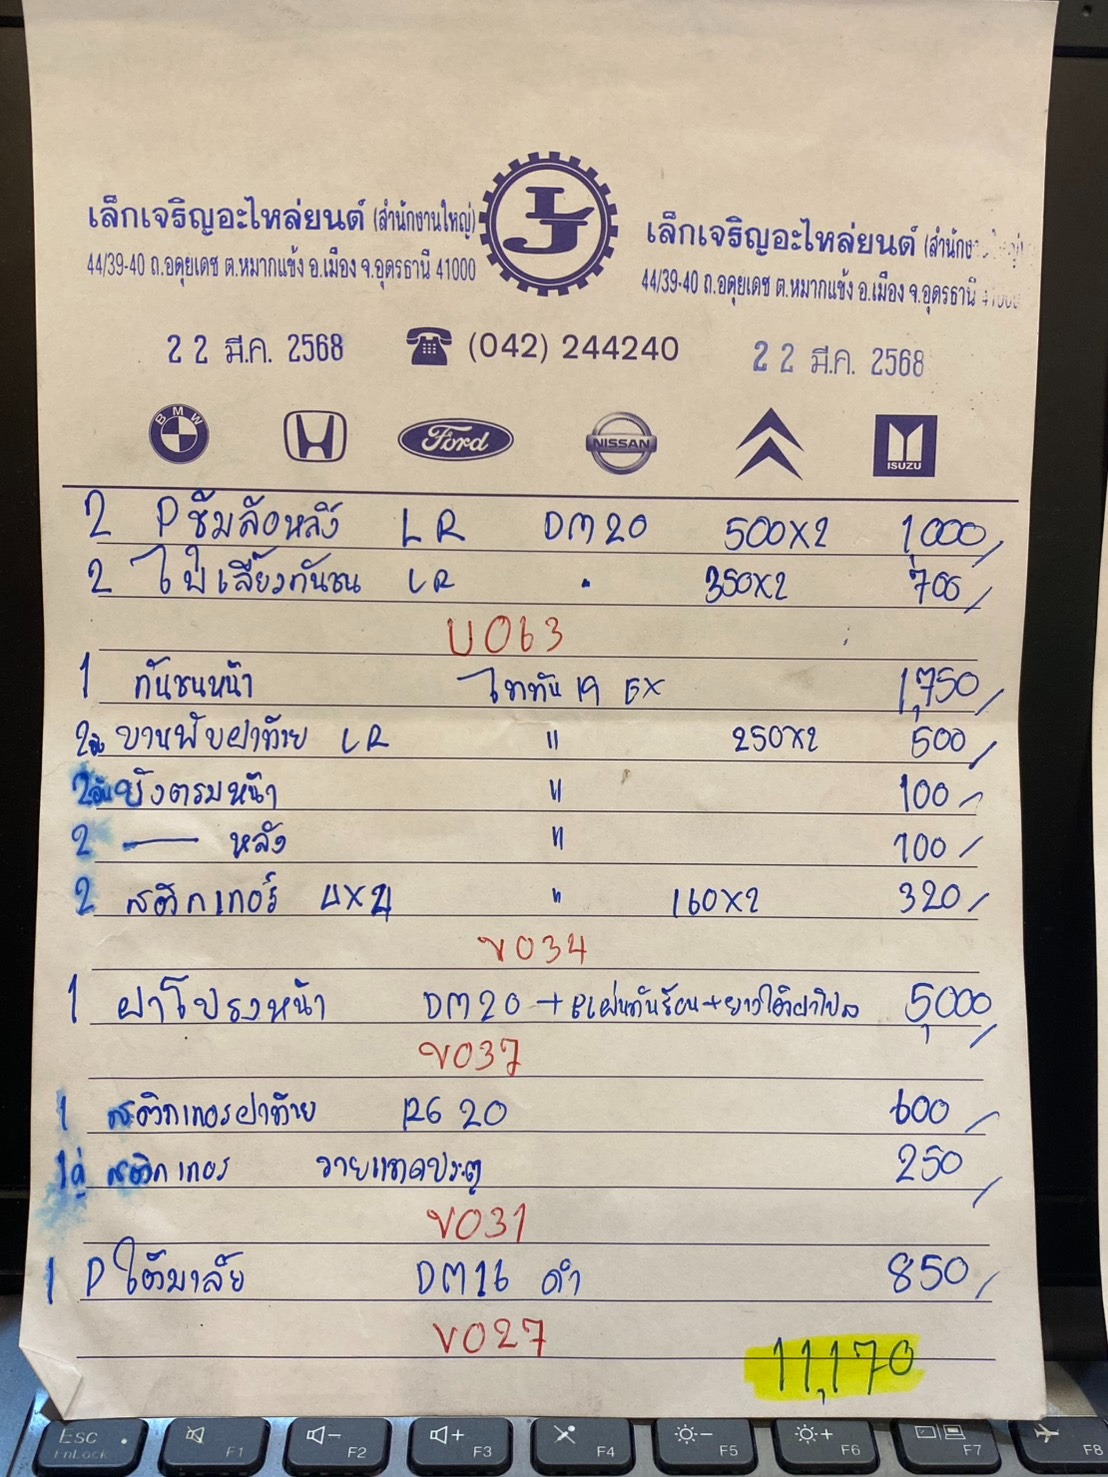 เล็กเจริญอะไหล่ยนต์ (สำนักงานใหญ่)
44/39-40 ถ.อดุยเดช ต.หมากแข้ง อ.เมือง จ.อุดรธานี 41000
LJ
เล็กเจริญอะไหล่ยนต์ (สำนักงานใหญ่)
44/39-40 ถ.อดุยเดช ต.หมากแข้ง อ.เมือง จ.อุดรธานี 41000
22 มี.ค. 2568 (042) 244240 22 มี.ค. 2568
BMW Ford NISSAN ISUZU
2 Pซุ้มล้อหลัง LR DM20 500X2 1,000/
2 ไฟเลี้ยวกันชน LR " 350X2 700/
U063
1 กันชนหน้า ไททัน 19 EX 1,750/
2 บานพับฝาท้าย LR " 250X2 500/
2อัน บังตรมหน้า " 100/
2 — หลัง " 100/
2 สติกเกอร์ 4X4 " 160X2 320/
V034
1 ฝาโปรงหน้า DM20 + แผ่นกันร้อน + ยางใต้ฝาโปรง 5,000/
V037
1 สติกเกอร์ฝาท้าย RG 20 600/
1คู่ สติกเกอร ประตู 250/
V031
1 P DM16 ดำ 850/
V027
11,170
Esc FnLock F1 F2 F3 F4 F5 F6 F7 F8